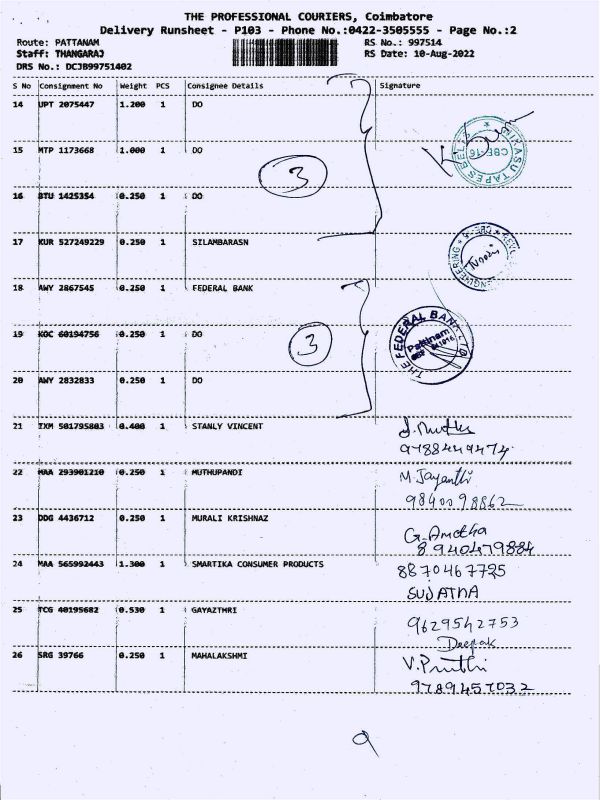 THE PROFESSIONAL COURIERS, Coimbatore
Delivery Runsheet - P103 - Phone No.:0422-3505555 - Page No.:2
Route: PATTANAM RS No.: 997514
Staff: THANGARAJ RS Date: 10-Aug-2022
DRS No.: DCJB99751402
S No Consignment No Weight PCS Consignee Details Signature
14 UPT 2075447 1.200 1 DO
15 MTP 1173668 1.000 1 DO
3
16 BTU 1425354 0.250 1 DO
17 KUR 527249229 0.250 1 SILAMBARASN
18 AWY 2867545 0.250 1 FEDERAL BANK
THE FEDERAL BANK LTD
Pattnam
19 KOC 60194756 0.250 1 DO
3
20 AWY 2832833 0.250 1 DO
21 TXM 501795803 0.400 1 STANLY VINCENT
9788449474
22 MAA 293901210 0.250 1 MUTHUPANDI M. Jayanthi
9840098862
23 DDG 4436712 0.250 1 MURALI KRISHNAZ
8940479884
24 MAA 565992443 1.300 1 SMARTIKA CONSUMER PRODUCTS 8870467725
SUJATHA
25 TCG 40195682 0.530 1 GAYAZTHRI 9629542753
Deepak
26 SRG 39766 0.250 1 MAHALAKSHMI V. Pruthi
9789457032
9